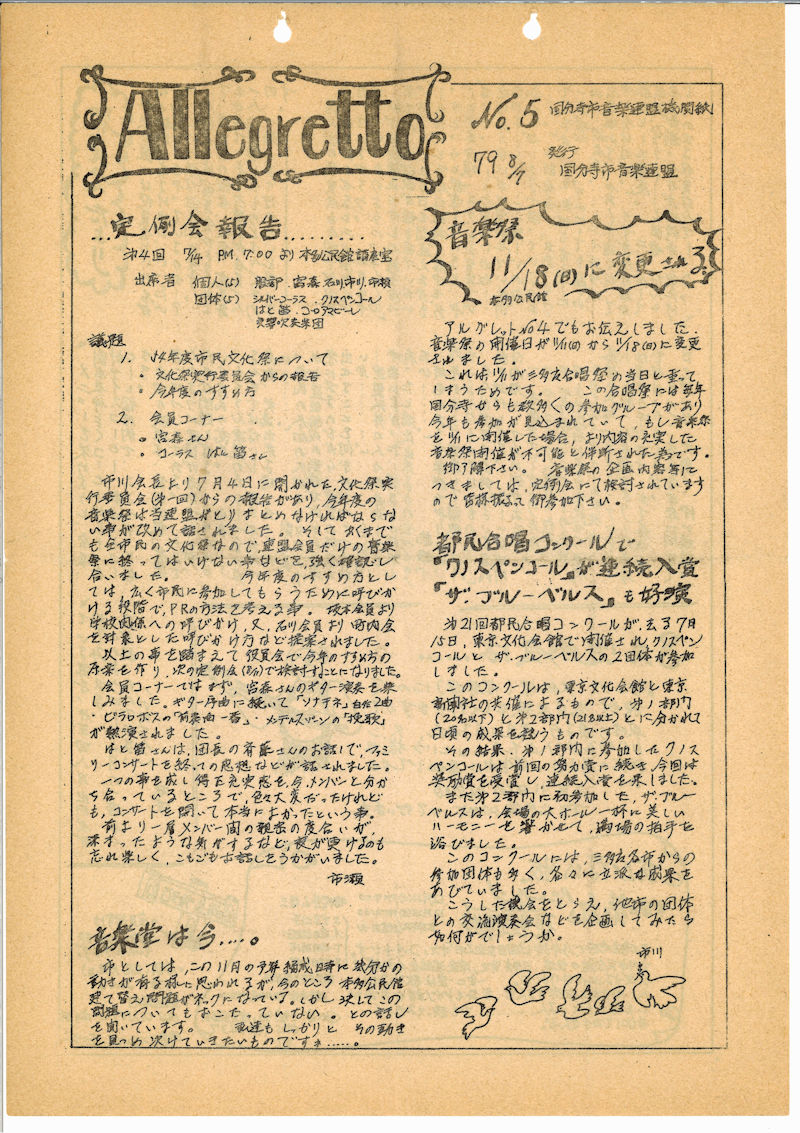 Allegretto
No.5 国分寺市音楽連盟機関紙
79 8/7 発行
国分寺市音楽連盟
...定例会報告.........
第4回 7/14 PM.7:00より本多公民館講座室
出席者 個人(5) 服部.宮森.石川.市川.市瀬
団体(5) シルバーコーラス.クリスペンコール
はと笛.コーロアマビーレ
議題
1. 54年度市民文化祭について
・文化祭実行委員会からの報告
・今年度のすすめ方
2. 会員コーナー
・宮森さん
・コーラス はと笛さん
市川会長より7月4日に開かれた文化祭実
行委員会(第一回)からの報告があり,今年度の
音楽祭は当連盟がとりまとめなければならな
い事が改めて話されました。 そしてあくまで
も全市民の文化祭なので,連盟会員だけの音楽
祭に終ってはいけない事などを,強く確認し
合いました。 今年度のすすめ方とし
ては,広く市民に参加してもらうために呼びか
ける段階で,PRの方法を考える事。 坂本会員より
学校関係への呼びかけ,又,石川会員より町内会
を対象とした呼びかけ方など提案されました。
以上の事を踏まえて役員会で今年のすすめ方の
原案を作り,次の定例会で検討することになりました。
会員コーナーではまず,宮森さんのギター演奏を楽
しみました。ギター序曲に続いて「ソナチネ」自作2曲
・ビラロボスの「前奏曲一番」・メンデルスゾーンの「挽歌」
が熱演されました。
はと笛さんは,団長の斉藤さんのお話しで,ファミ
リーコンサートを終っての感想などが話されました。
一つの事を成し得た充実感を,今,メンバーと分か
ち合っているところで,色々大変だったけれど
も,コンサートを開いて本当によかったという事。
前より一層メンバー間の親密の度合いが,
深まったような気がするなど,夜が更けるのも
忘れ楽しく,こもごもお話しをうかがいました。
市瀬
音楽堂は今....。
市としては,この11月の予算編成時に幾分かの
動きが有る様に思われるが,今のところ本多公民館
建て替え問題がネックになっている。しかし決してこの
問題についてもおこたっていない。との話し
を聞いています。 私達もしっかりと その動き
を見つめ続けていきたいものですネ.....。
音楽祭
11/18(日)に変更される。
本多公民館
アルグレットNo4でもお伝えしました,
音楽祭の開催日が11/11(日)から11/18(日)に変更
されました。
これは11/11が三多摩合唱祭の当日と重って
しまうためです。 この合唱祭には毎年
国分寺からも数多くの参加グループがあり
今年も参加が見込まれていて,もし音楽祭
を11/11に開催した場合,より内容の充実した
音楽祭開催が不可能と判断された為です。
御了解下さい。 音楽祭の企画内容等に
つきましては,定例会にて検討されています
ので皆様揃って御参加下さい。
都民合唱コンクールで
『クリスペンコール』が連続入賞
『ザ・ブルーベルス』も好演
第21回都民合唱コンクールが,去る7月
15日,東京文化会館で開催され,クリスペン
コールと ザ・ブルーベルスの2団体が参加
しました。
このコンクールは,東京文化会館と東京
新聞社の共催によるもので,第1部門
(20名以下)と第2部門(21名以上)とに分かれて
日頃の成果を競うものです。
その結果,第1部門に参加したクリス
ペンコールは前回の努力賞に続き,今回は
奨励賞を受賞し,連続入賞を果しました。
また第2部門に初参加した,ザ・ブルー
ベルスは,会場の大ホール一杯に美しい
ハーモニーを響かせて,満場の拍手を
浴びました。
このコンクールには,三多摩各市からの
参加団体も多く,各々に立派な成果を
あげていました。
こうした機会をとらえ,他市の団体
との交流演奏会などを企画してみたら
如何がでしょうか。
市川